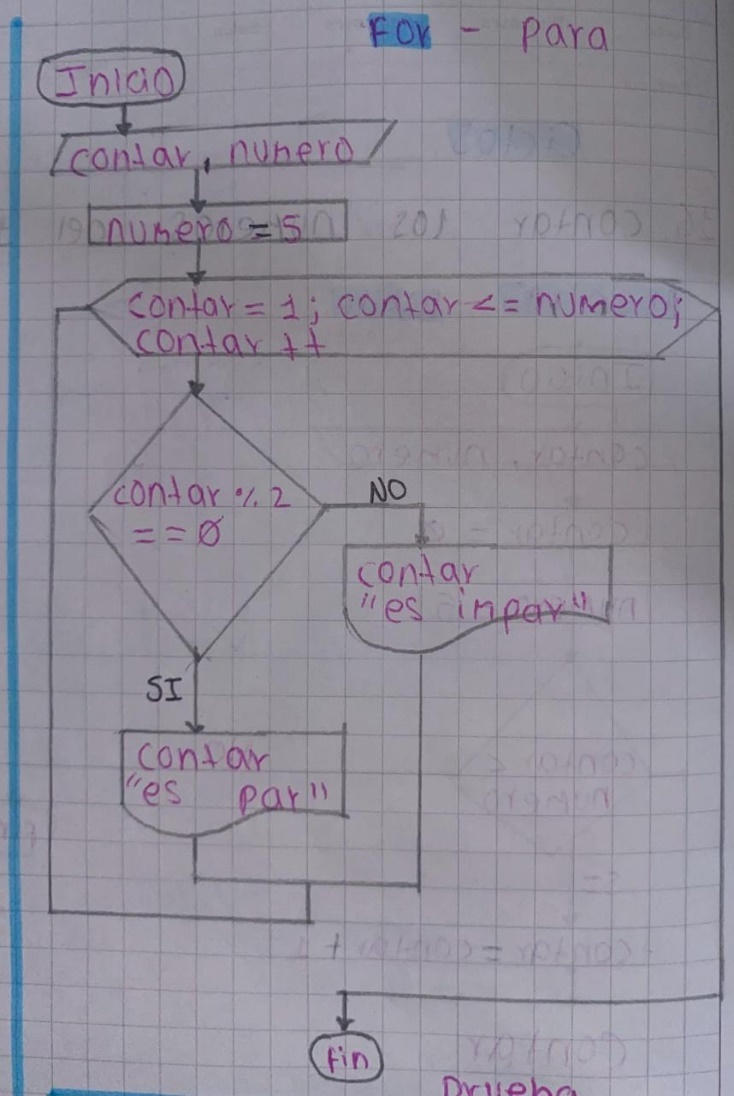 For - Para
Inicio
contar, numero
numero = 5
contar = 1; contar <= numero;
contar ++
contar % 2
== 0
NO
contar
"es impar"
SI
contar
"es par"
fin
Prueba